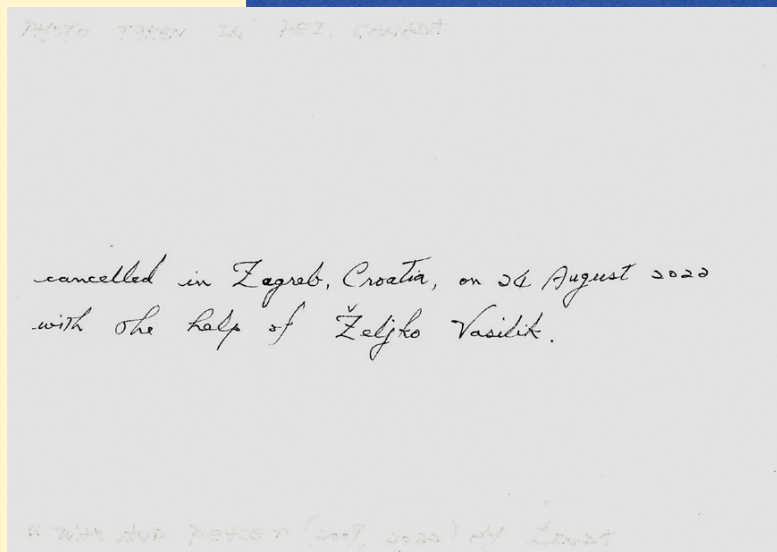 PHOTO TAKEN IN PEI. CANADA
cancelled in Zagreb, Croatia, on 24 August 2022
with the help of Željko Vasilik.
" WAR AND PEACE " (2009, 2022) by